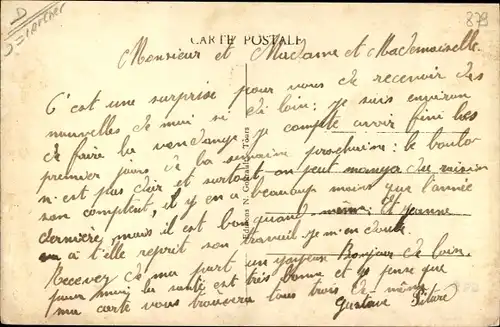 D
à Scierther
879
CARTE POSTALE
Monsieur et Madame et Mademoiselle
C'est une surprise pour vous de recevoir des
nouvelles de moi si de loin: je suis environ
de faire la vendange je compte avoir fini les
premier jours de la semaine prochaine: le boulo
n'est pas dur et surtout on peut manger du raisin
son comptent, il y en a beaucoup moins que l'année
dernière, mais il est bon quand même. Et Jeanne
va a t'elle reprit son travail je m'en doute.
Recevez de ma part un joyeux Bonjour de loin.
pour moi la santé est très bonne et je pense que
ma carte vous trouvera tous trois de même
Gustave
Editions N. G. Tours